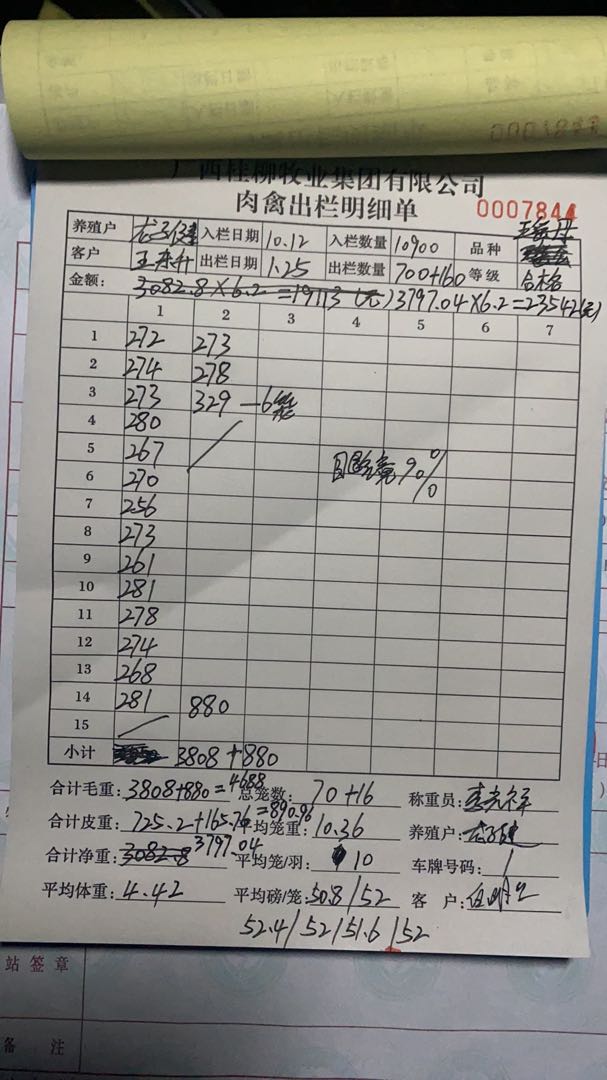 西桂柳牧业集团有限公司
肉禽出栏明细单 0007844
养殖户 入栏日期 10.12 入栏数量 10900 品种
客户 出栏日期 1.25 出栏数量 700+160 等级 合格
金额: 3082.8×6.2=19113(元) 3797.04×6.2=23542(元)
1 2 3 4 5 6 7
1 272 273
2 274 278
3 273 329 —6笼
4 280
5 267 9%
6 270
7 256
8 273
9 261
10 281
11 278
12 274
13 268
14 281 880
15
小计 3808+880
合计毛重: 3808+880=4688 总笼数: 70+16 称重员:
合计皮重: 725.2+165.76=890.96 平均笼重: 10.36 养殖户:
合计净重: 3082.8 3797.04 平均笼/羽: 10 车牌号码: /
平均体重: 4.42 平均磅/笼: 50.8/52 客户:
52.4/52/51.6/52
站签章
备注